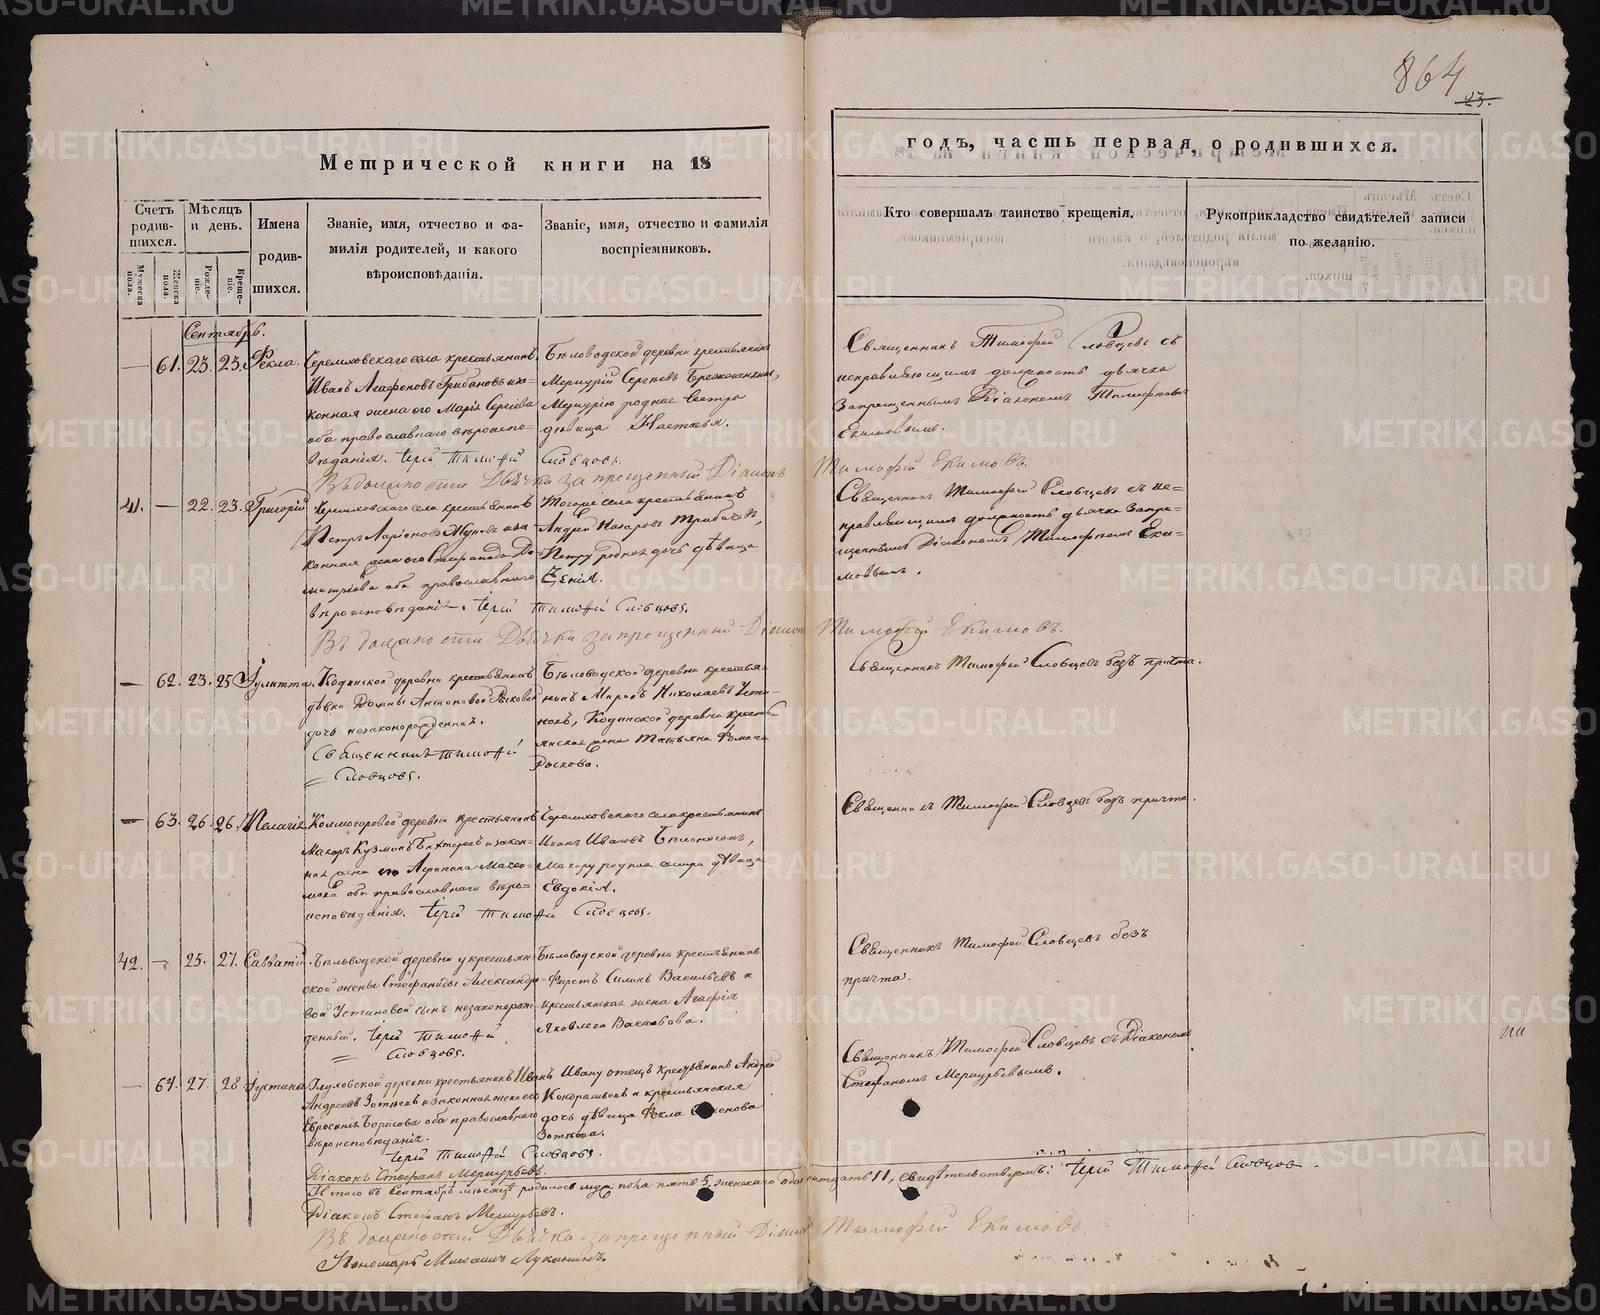 864
23.
Метрической книги на 18
годъ, часть первая, о родившихся.
Счетъ родив-шихся.
Мужеска пола.
Женска пола.
Мѣсяцъ и день.
Рожде-ніе.
Креще-ніе.
Имена родив-шихся.
Званіе, имя, отчество и фа-
милія родителей, и какого
вѣроисповѣданія.
Званіе, имя, отчество и фамилія
воспріемниковъ.
Кто совершалъ таинство крещенія.
Рукоприкладство свидѣтелей записи
по желанію.
Сентябрь.
— 61. 23. 25. Ѳекла.
Черемховскаго села крестьянинъ
Иванъ Агафоновъ Грибановъ и за-
конная жена его Марія Сергіева
оба православнаго вѣроиспо-
вѣданія. Іерей Тимоѳей Словцовъ.
Бѣловодской деревни крестьянинъ
Меркурій Сергеевъ
Меркурію родная сестра
дѣвица Настасья.
Священникъ Тимофей Словцевъ съ
исправляющимъ должность дьячка
Запрещеннымъ Діакономъ Тимофеемъ
Екимовымъ.
Въ должности Дьячка запрещенный Діаконъ Тимофей Екимовъ.
41. — 22. 23. Григорій.
Черемховскаго села крестьянинъ
Петръ Ларіоновъ и за-
конная жена его Степанида Ди-
митріева оба православнаго
вѣроисповѣданія. Іерей Тимоѳей Словцовъ.
Тогоже села крестьянинъ
Андрей Назаровъ
Петру родная дочь дѣвица
Ксенія.
Священникъ Тимофей Словцевъ съ ис-
правляющимъ должность дьячка Запре-
щеннымъ Діакономъ Тимофеемъ Еки-
мовымъ.
Въ должности Дьячка запрещенный Діаконъ Тимофей Екимовъ.
— 62. 23. 25 Іулитта.
Кодинской деревни крестьянской
дѣвки Домны Антоновой Рыковой
дочь незаконорожденная.
Священникъ Тимоѳей
= Словцовъ.
Бѣловодской деревни крестья-
нинъ Миронъ Николаевъ Усти-
новъ, Кодинской деревни кресть-
янская жена Татьяна
Рыкова.
Священникъ Тимофей Словцевъ безъ причта.
— 63. 26. 26. Пелагія.
Колмогоровой деревни крестьянинъ
Макаръ Кузминъ Бахтеревъ и закон-
ная жена его Акилина Макси-
мова оба православнаго вѣро-
исповѣданія. Іерей Тимоѳей Словцовъ.
Черемховскаго села крестьянинъ
Иванъ Ивановъ Бѣлоносовъ,
Макару родная сестра дѣвица
Евдокія.
Священникъ Тимофей Словцевъ безъ причта.
42. — 25. 27. Савватій.
Бѣловодской деревни у крестьян-
ской жены Стефаниды Александро-
вой Устиновой сынъ незаконорож-
денный. Іерей Тимоѳей
= Словцовъ.
Бѣловодской деревни крестьянинъ
Фирсъ Силинъ Васильевъ и
крестьянская жена Агафія
Яковлева
Священникъ Тимофей Словцевъ безъ
причта.
— 64. 27. 28 Іустина.
деревни крестьянинъ Иванъ
Андреевъ Зотѣевъ и законная жена его
Евросинія Борисова оба православнаго
вѣроисповѣданія.
Іерей Тимоѳей Словцовъ.
Діаконъ Стефанъ Меркурьевъ.
Ивану отецъ крестьянинъ Андрей
Кондратьевъ и крестьянская
дочь дѣвица Ѳекла Семенова
Зотѣева.
Священникъ Тимофей Словцевъ съ Діакономъ
Стефаномъ Меркурьевымъ.
Итого въ Сентябрѣ мѣсяцѣ родилось муж: пола пять 5, женскаго одинадцать 11, свидѣтельствуемъ: Іерей Тимоѳей Словцовъ.
Діаконъ Стефанъ Меркурьевъ.
Въ должности Дьячка запрещенный Діаконъ Тимофей Екимовъ.
Пономарь Михаилъ Лукининъ.
METRIKI.GASO-URAL.RU